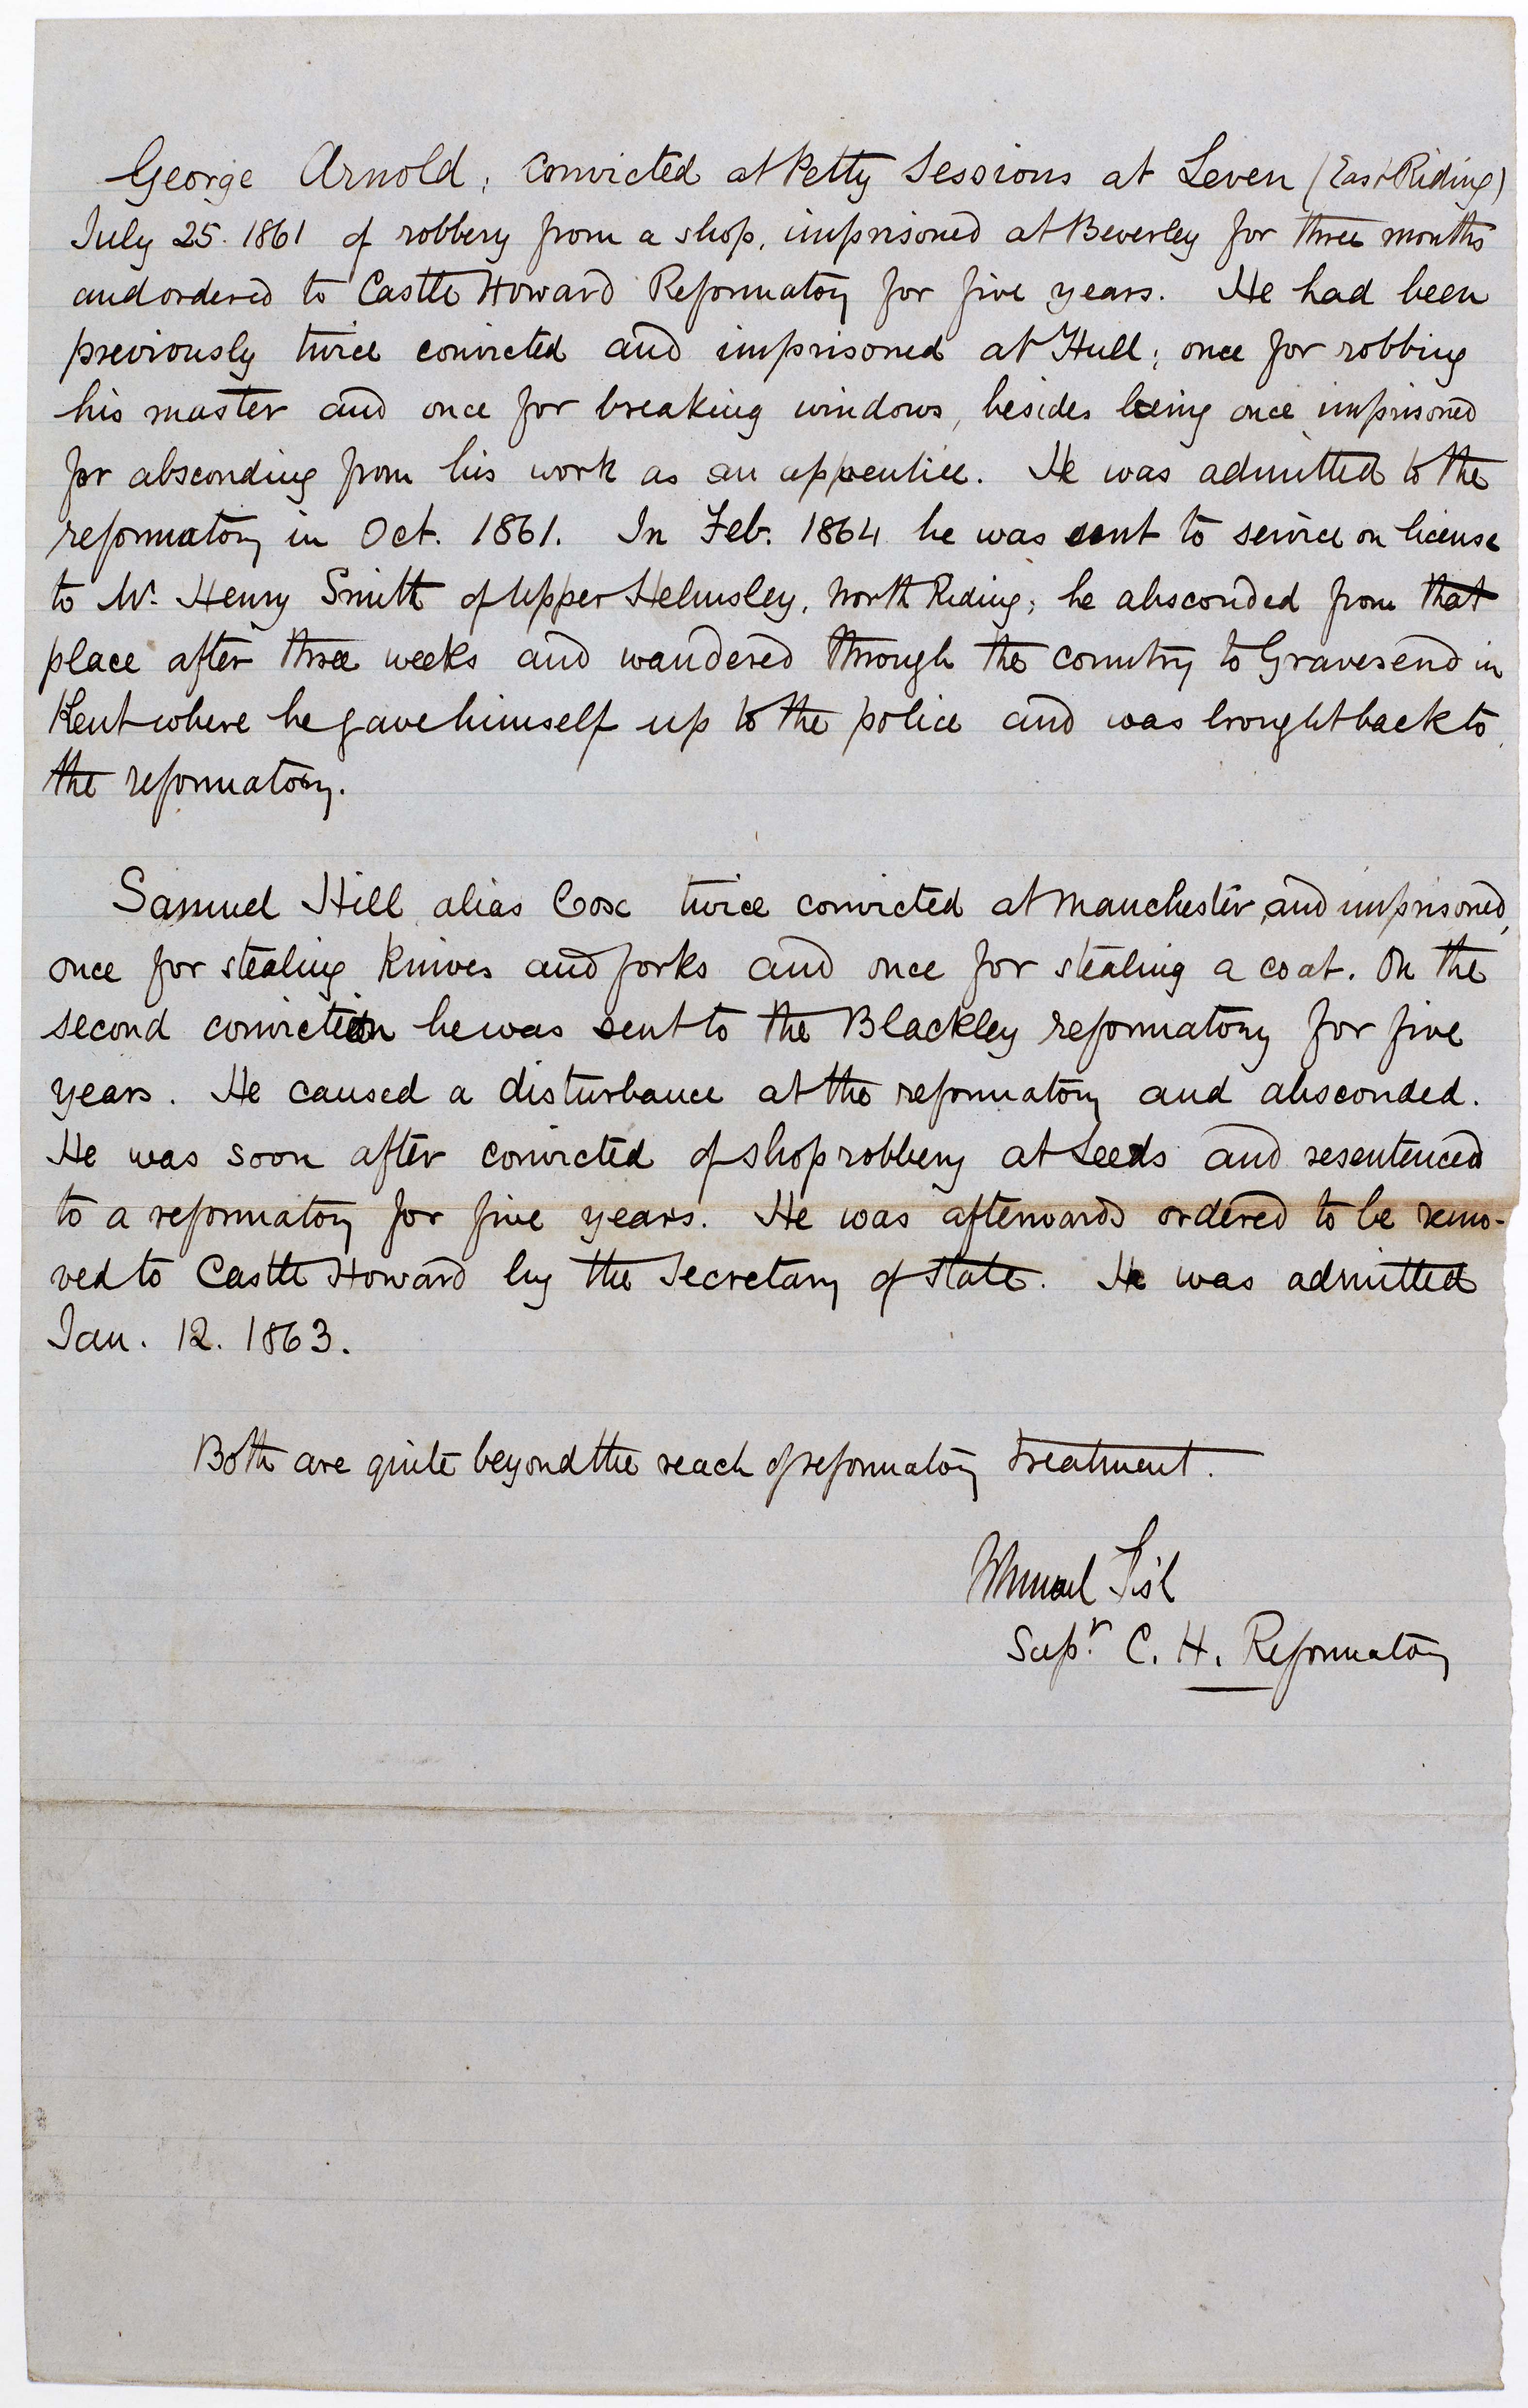 George Arnold; convicted at Petty Sessions at Leven (East Riding)
July 25. 1861 of robbery from a shop, imprisoned at Beverley for three months
and ordered to Castle Howard Reformatory for five years. He had been
previously twice convicted and imprisoned at Hull; once for robbing
his master and once for breaking windows, besides being once imprisoned
for absconding from his work as an apprentice. He was admitted to the
reformatory in Oct. 1861. In Feb. 1864 he was sent to service on license
to Mr. Henry Smith of Upper Helmsley, North Riding; he absconded from that
place after three weeks and wandered through the country to Gravesend in
Kent where he gave himself up to the police and was brought back to
the reformatory.
Samuel Hill alias Cox twice convicted at Manchester, and imprisoned,
once for stealing knives and forks and once for stealing a coat. On the
second conviction he was sent to the Blackley reformatory for five
years. He caused a disturbance at the reformatory and absconded.
He was soon after convicted of shop robbery at Leeds and resentenced
to a reformatory for five years. He was afterwards ordered to be remo-
ved to Castle Howard by the Secretary of State. He was admitted
Jan. 12. 1863.
Both are quite beyond the reach of reformatory treatment.
Supr. C. H. Reformatory